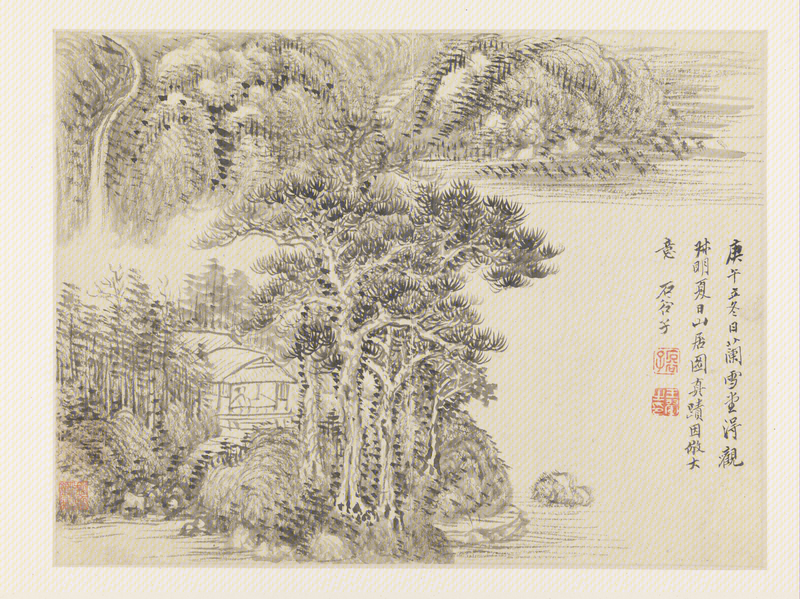 庚午五冬日蘭雪堂得觀
叔明夏日山居圖真蹟因倣大
意 石谷子